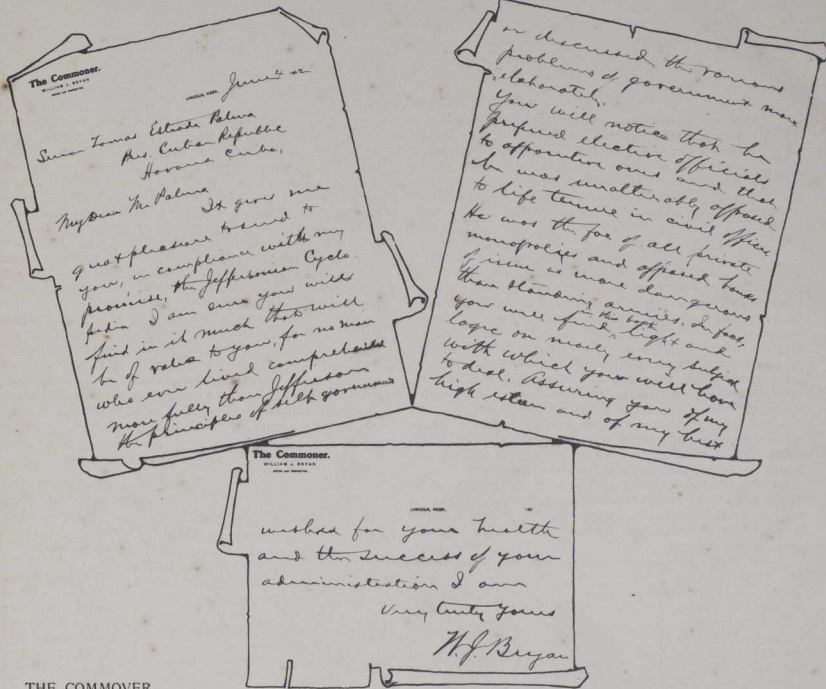 The Commoner.
WILLIAM J. BRYAN
EDITOR AND PROPRIETOR
LINCOLN, NEBR. June 4 1902
Senor Tomas Estrada Palma
Pres. Cuban Republic
Havana Cuba,
My Dear Mr Palma
It gives me
great pleasure to send to
you, in compliance with my
promise, the Jeffersonian Cyclo
pedia I am sure you will
find in it much that will
be of value to you, for no man
who ever lived comprehended
more fully than Jefferson
the principles of self government
or discussed the various
problems of government more
elaborately.
You will notice that he
prefered elective officials
to appointive ones and that
he was unalterably opposed
to life tenure in civil offices
He was the foe of all private
monopolies and opposed banks
of issue as more dangerous
than standing armies. In fact,
you will find in this book light and
logic on nearly every subject
with which you will have
to deal. Assuring you of my
high esteem and of my best
The Commoner.
WILLIAM J. BRYAN
EDITOR AND PROPRIETOR
LINCOLN, NEBR. 190
wishes for your health
and the success of your
administration I am
Very truly yours
W. J. Bryan
THE COMMOVER